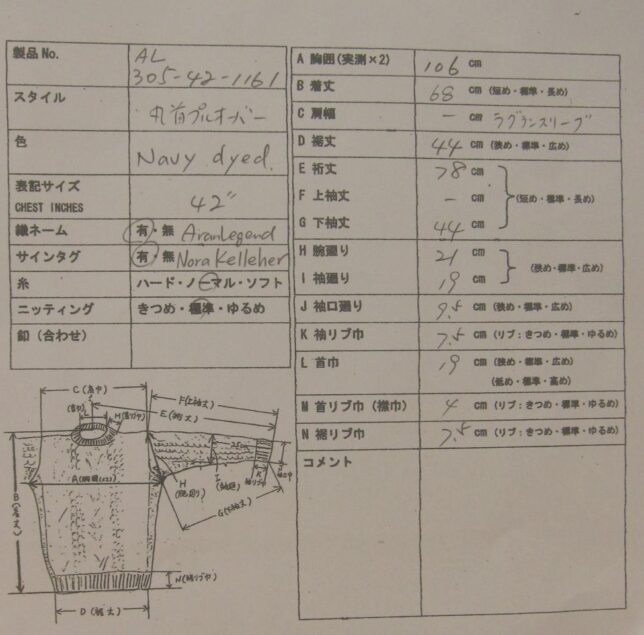 製品No.
AL
305-42-1161
スタイル
丸首プルオーバー
色
Navy dyed.
表記サイズ
CHEST INCHES
42"
織ネーム
有・無 AranLegend
サインタグ
有・無 Nora Kelleher
糸
ハード・ノーマル・ソフト
ニッティング
きつめ・標準・ゆるめ
釦（合わせ）
A 胸囲(実測×2)
106 cm
B 着丈
68 cm (短め・標準・長め)
C 肩幅
- cm ラグランスリーブ
D 裾丈
44 cm (狭め・標準・広め)
E 裄丈
78 cm
F 上袖丈
- cm (短め・標準・長め)
G 下袖丈
44 cm
H 腕廻り
21 cm
I 袖廻り
19 cm (狭め・標準・広め)
J 袖口廻り
9.5 cm (狭め・標準・広め)
K 袖リブ巾
7.5 cm (リブ：きつめ・標準・ゆるめ)
L 首巾
19 cm (狭め・標準・広め)
(低め・標準・高め)
M 首リブ巾（襟巾）
4 cm (リブ：きつめ・標準・ゆるめ)
N 裾リブ巾
7.5 cm (リブ：きつめ・標準・ゆるめ)
コメント
C(肩巾)
F(上袖丈)
E(裄丈)
L
A(胸囲)
B(着丈)
H
I
K
G(下袖丈)
N(裾リブ巾)
D(裾丈)